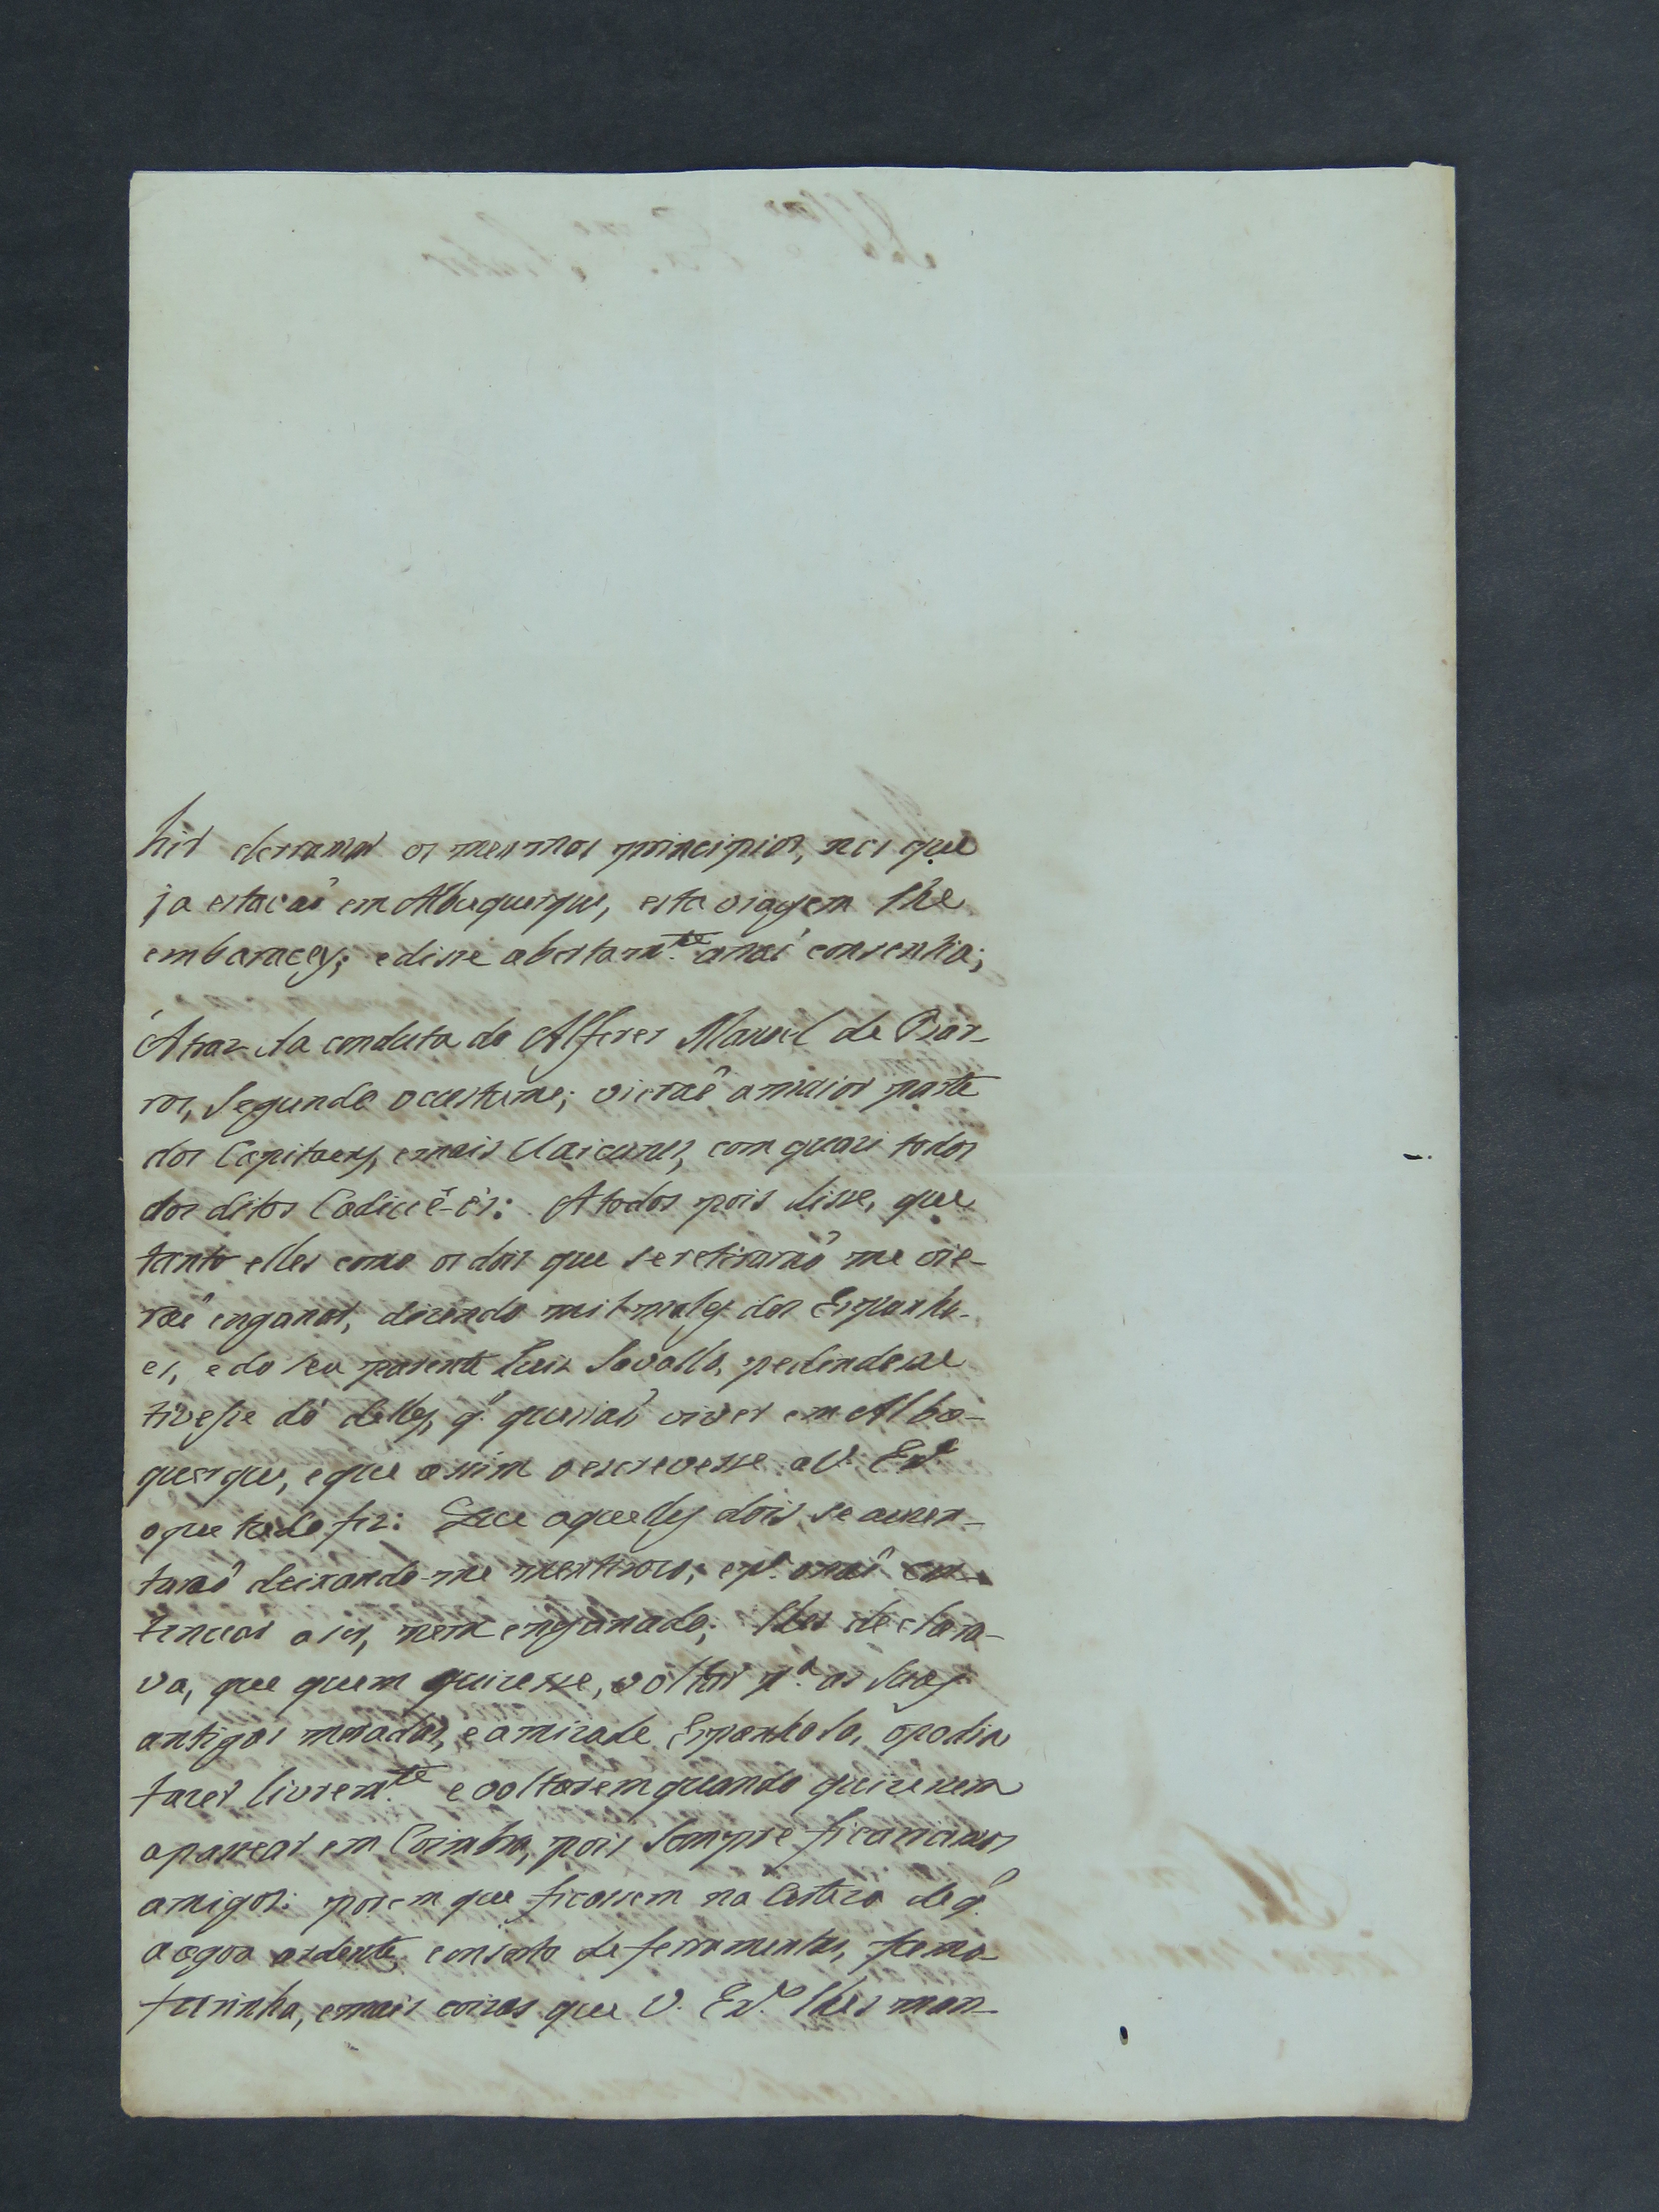 hir derramar os mesmos principios, nos que
ja estaçaõ em Albuquerque, esta viagem lhe
embaracey; e disse abertam.te a naõ consentia;
Atraz da conduta do Alferes Manoel de Bar-
ros, segundo o custume; vieraõ a maior parte
dos Capitaens, e mais Uaicurus, com quazi todos
dos ditos Cadicéèos: A todos pois disse, que
tanto elles como os dois que se retiraraõ me vie-
raõ enganar, dizendo mil males dos Espanho-
es, e do seu parente Luiz Savallo, pedindo-me
tivesse dó delles, q. queriaõ viver em Albo-
querque, e que assim o escrevesse a V. Ex.a
o que tudo fiz: Que aquelles dois se auzen-
taraõ deixando-me mentirozo; e p.a o naõ con-
tinuar a ser, nem enganado; lhes declara-
va, que quem quizesse, voltar p.a as suas
antigas moradas, e amizade Espanhola, o podia
fazer livrem.te e voltarem quando quizessem
a passear em Coimbra, pois sempre ficariamos
amigos: porem que ficassem na certeza de q.
a agoa ardente, conserto de ferramentas, fumo
farinha, e mais coizas que V. Ex.a lhes man-